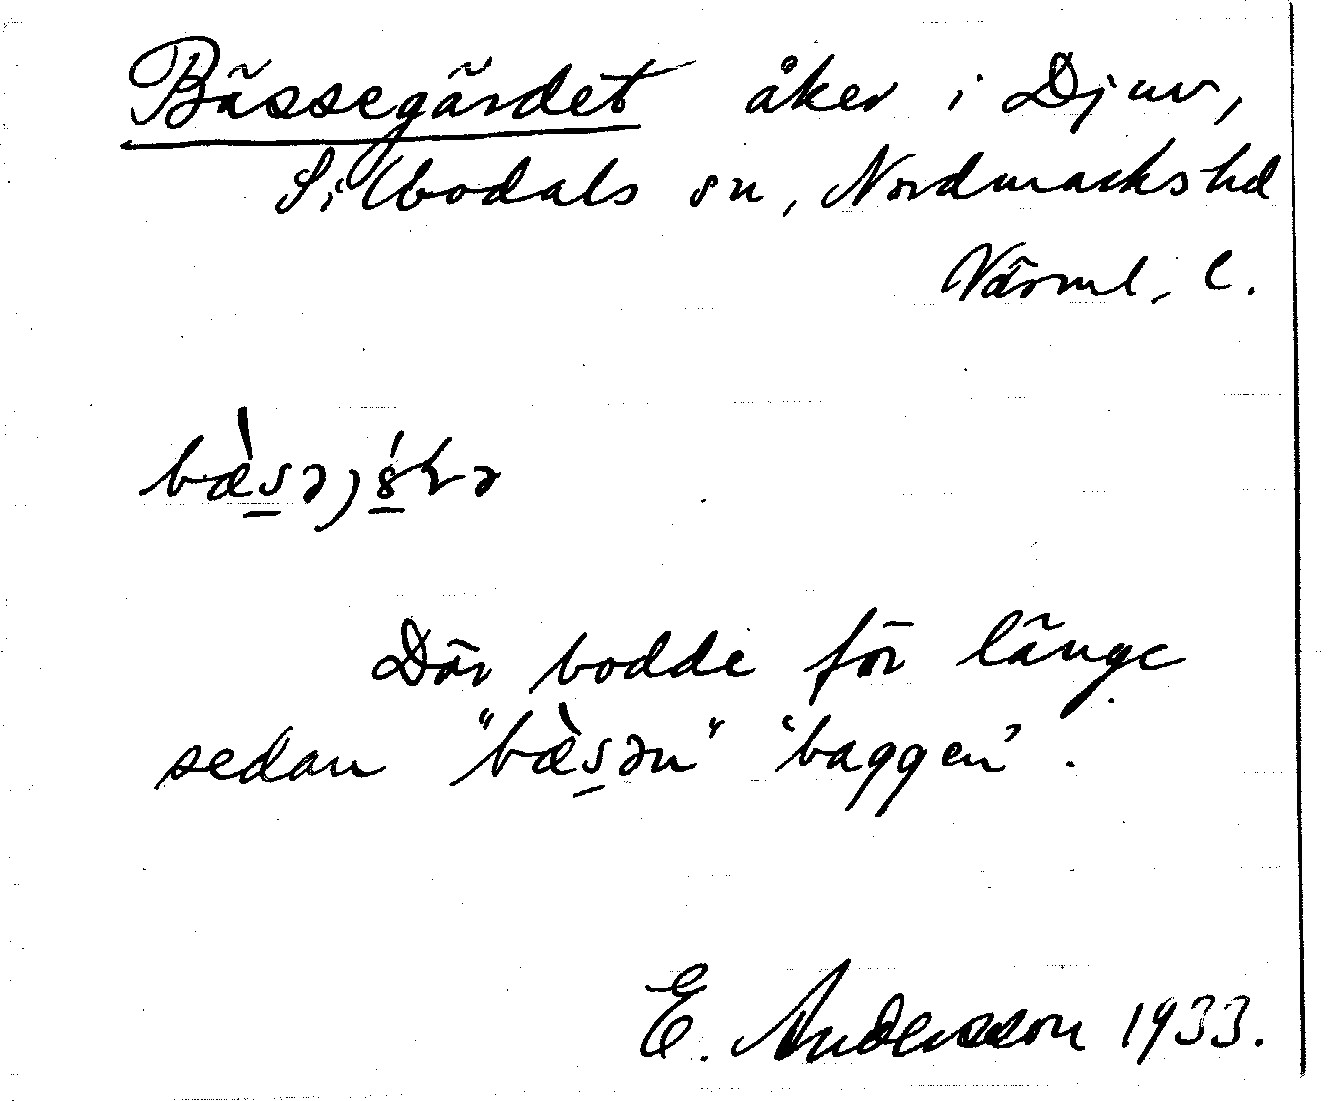 Bässegärdet åker i Djuv,
Silbodals sn, Nordmarks hd
Värml. l.
bæ̀s̲əj8̲́ɽə
Där bodde för länge
sedan "bæ̀s̲ən" 'baggen'.
E. Andersson 1933.